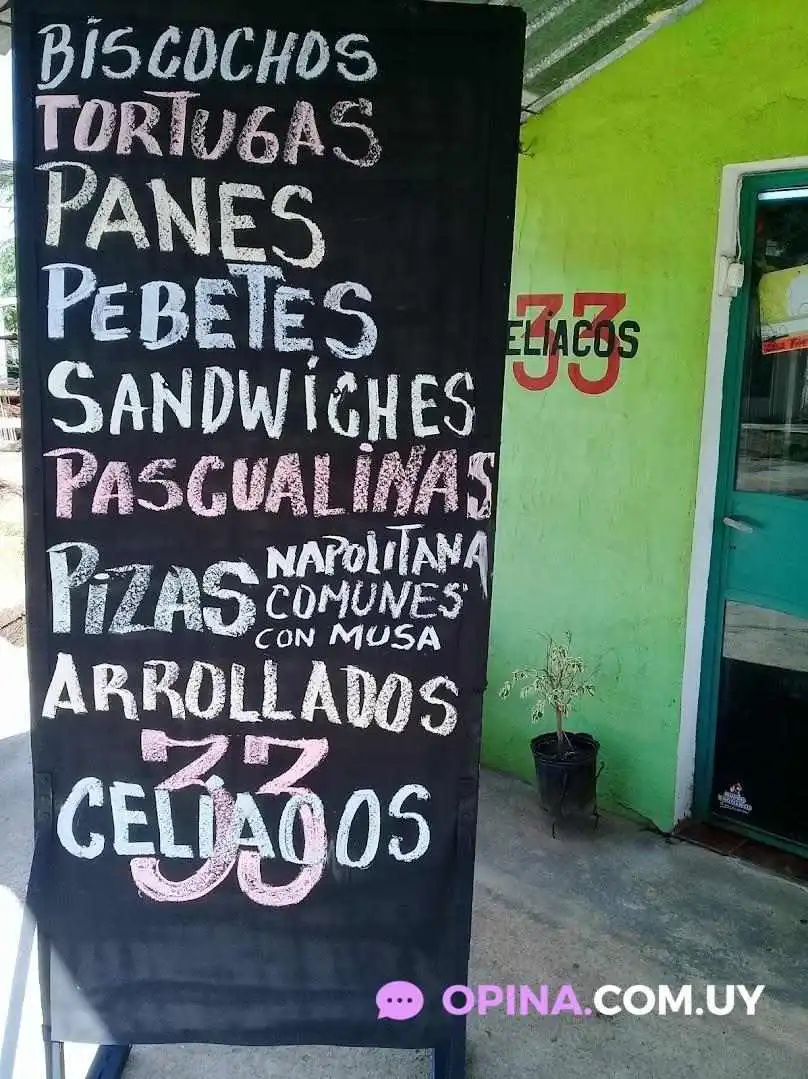 BISCOCHOS
TORTUGAS
PANES
PEBETES
SANDWICHES
PASCUALINAS
PIZAS NAPOLITANA
COMUNES
CON MUSA
ARROLLADOS
33
CELÍACOS
33
ELÍACOS
OPINA.COM.UY